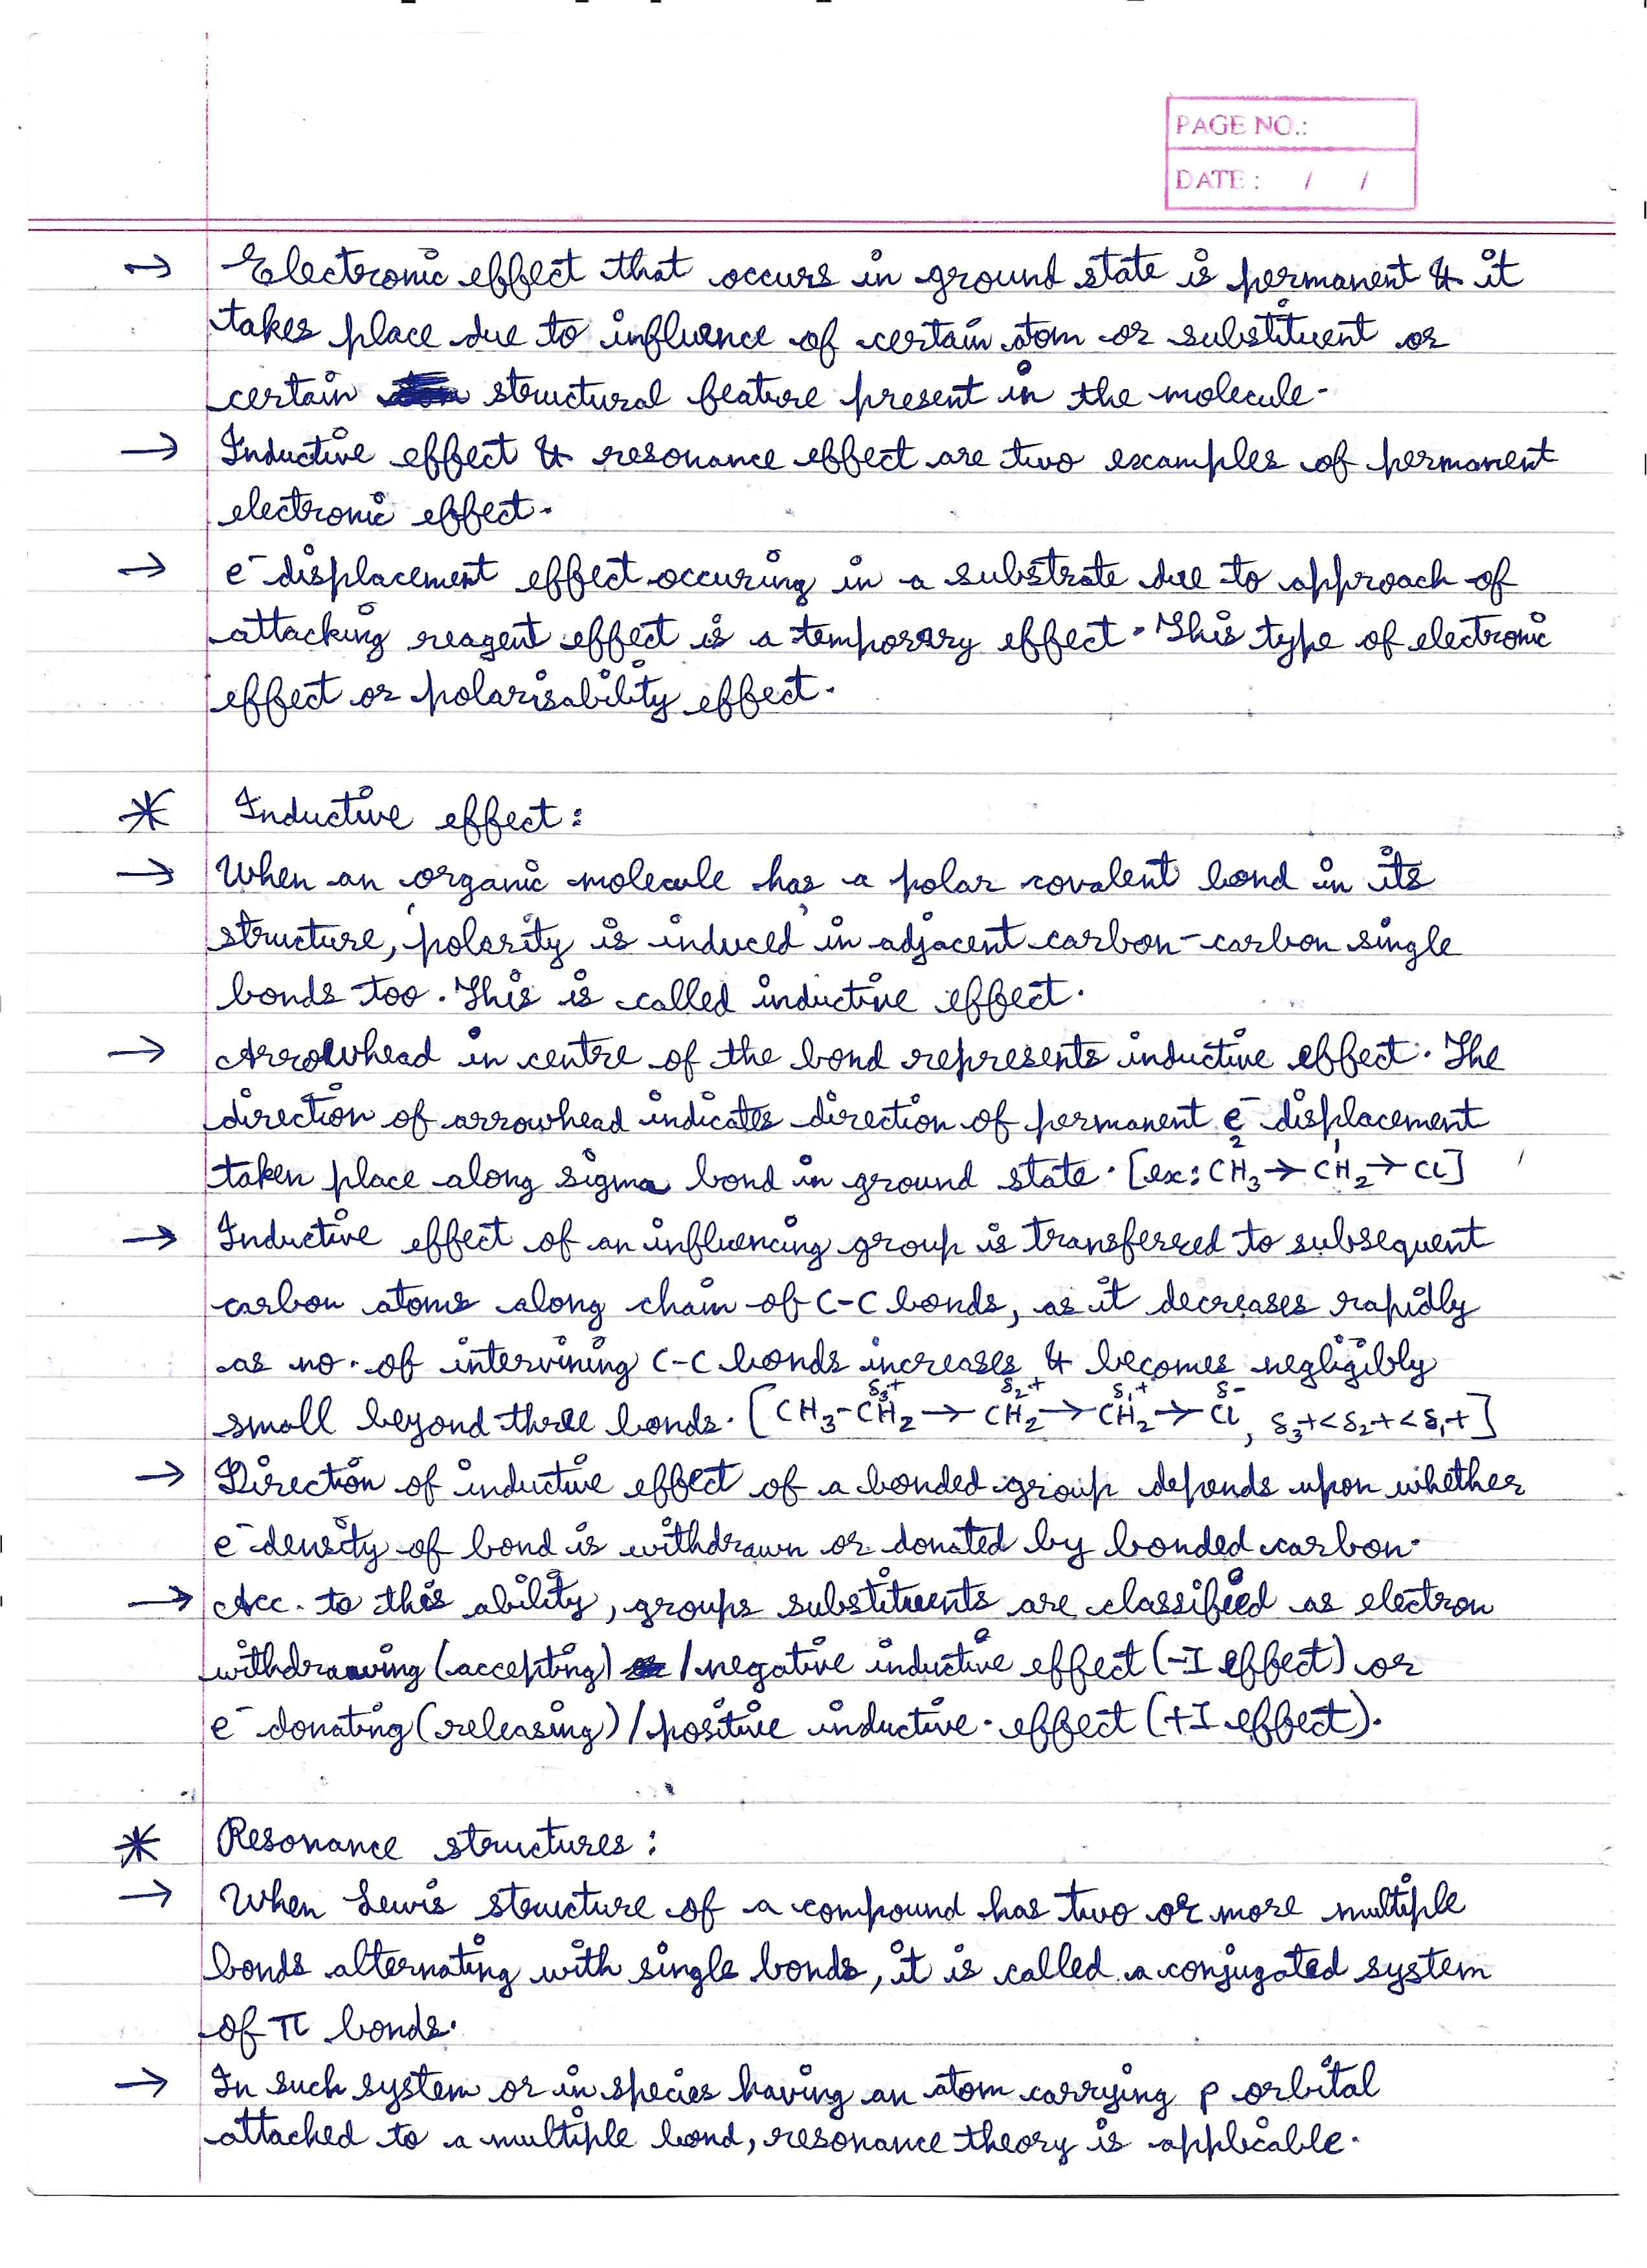 PAGE NO.:
DATE : / /
→ Electronic effect that occurs in ground state is permanent & it
takes place due to influence of certain atom or substituent or
certain structural feature present in the molecule.
→ Inductive effect & resonance effect are two examples of permanent
electronic effect.
→ e⁻ displacement effect occuring in a substrate due to approach of
attacking reagent effect is a temporary effect. This type of electronic
effect or polarisability effect.
* Inductive effect:
→ When an organic molecule has a polar covalent bond in its
structure, polarity is induced in adjacent carbon-carbon single
bonds too. This is called inductive effect.
→ Arrowhead in centre of the bond represents inductive effect. The
direction of arrowhead indicates direction of permanent e⁻ displacement
taken place along sigma bond in ground state. [ex: C²H₃→C¹H₂→Cl]
→ Inductive effect of an influencing group is transferred to subsequent
carbon atoms along chain of C-C bonds, as it decreases rapidly
as no. of intervining C-C bonds increases & becomes negligibly
δ₃+ δ₂+ δ₁+ δ-
small beyond three bonds. [CH₃-CH₂→CH₂→CH₂→Cl, δ₃+<δ₂+<δ₁+]
→ Direction of inductive effect of a bonded group depends upon whether
e⁻ density of bond is withdrawn or donated by bonded carbon.
→ Acc. to this ability, groups substituents are classified as electron
withdrawing (accepting) / negative inductive effect (-I effect) or
e⁻ donating (releasing) / positive inductive effect (+I effect).
* Resonance structures:
→ When Lewis structure of a compound has two or more multiple
bonds alternating with single bonds, it is called a conjugated system
of π bonds.
→ In such system or in species having an atom carrying p orbital
attached to a multiple bond, resonance theory is applicable.